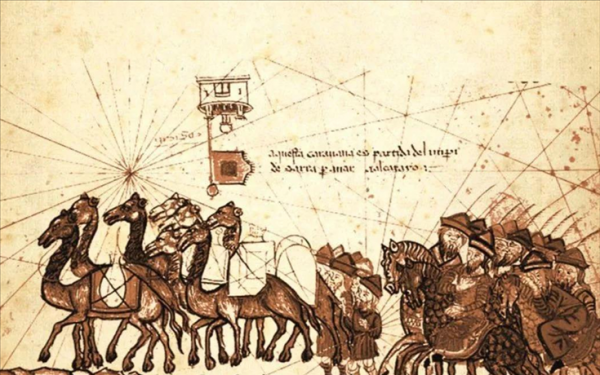 aquesta carauana es partida del inperi
de sarra p anar alcatayo :